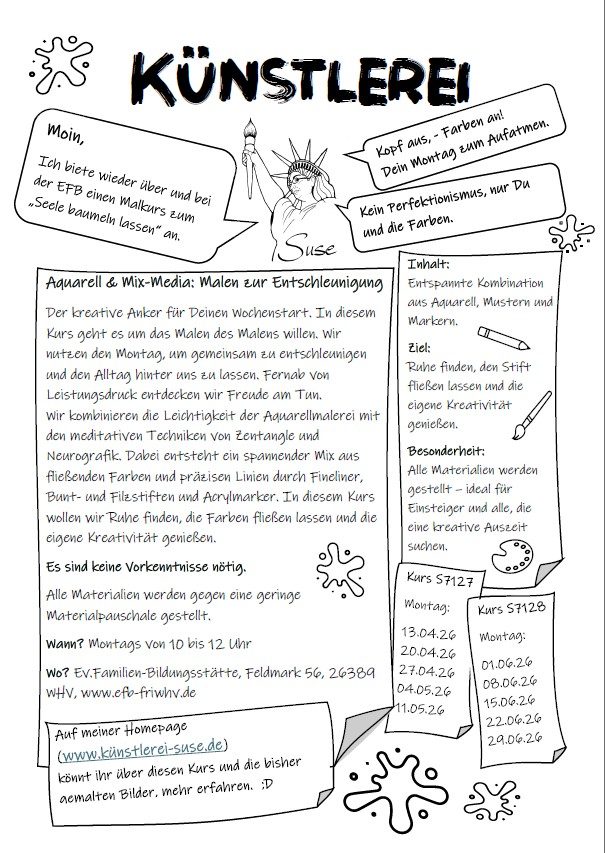 KÜNSTLEREI
Moin,
Ich biete wieder über und bei
der EFB einen Malkurs zum
„Seele baumeln lassen“ an.
Kopf aus, - Farben an!
Dein Montag zum Aufatmen.
Kein Perfektionismus, nur Du
und die Farben.
Suse
Aquarell & Mix-Media: Malen zur Entschleunigung
Der kreative Anker für Deinen Wochenstart. In diesem
Kurs geht es um das Malen des Malens willen. Wir
nutzen den Montag, um gemeinsam zu entschleunigen
und den Alltag hinter uns zu lassen. Fernab von
Leistungsdruck entdecken wir Freude am Tun.
Wir kombinieren die Leichtigkeit der Aquarellmalerei mit
den meditativen Techniken von Zentangle und
Neurografik. Dabei entsteht ein spannender Mix aus
fließenden Farben und präzisen Linien durch Fineliner,
Bunt- und Filzstiften und Acrylmarker. In diesem Kurs
wollen wir Ruhe finden, die Farben fließen lassen und die
eigene Kreativität genießen.
Es sind keine Vorkenntnisse nötig.
Alle Materialien werden gegen eine geringe
Materialpauschale gestellt.
Wann? Montags von 10 bis 12 Uhr
Wo? Ev.Familien-Bildungsstätte, Feldmark 56, 26389
WHV, www.efb-friwhv.de
Inhalt:
Entspannte Kombination
aus Aquarell, Mustern und
Markern.
Ziel:
Ruhe finden, den Stift
fließen lassen und die
eigene Kreativität
genießen.
Besonderheit:
Alle Materialien werden
gestellt – ideal für
Einsteiger und alle, die
eine kreative Auszeit
suchen.
Kurs S7127
Montag:
13.04.26
20.04.26
27.04.26
04.05.26
11.05.26
Kurs S7128
Montag:
01.06.26
08.06.26
15.06.26
22.06.26
29.06.26
Auf meiner Homepage
(www.künstlerei-suse.de)
könnt ihr über diesen Kurs und die bisher
gemalten Bilder, mehr erfahren. :D